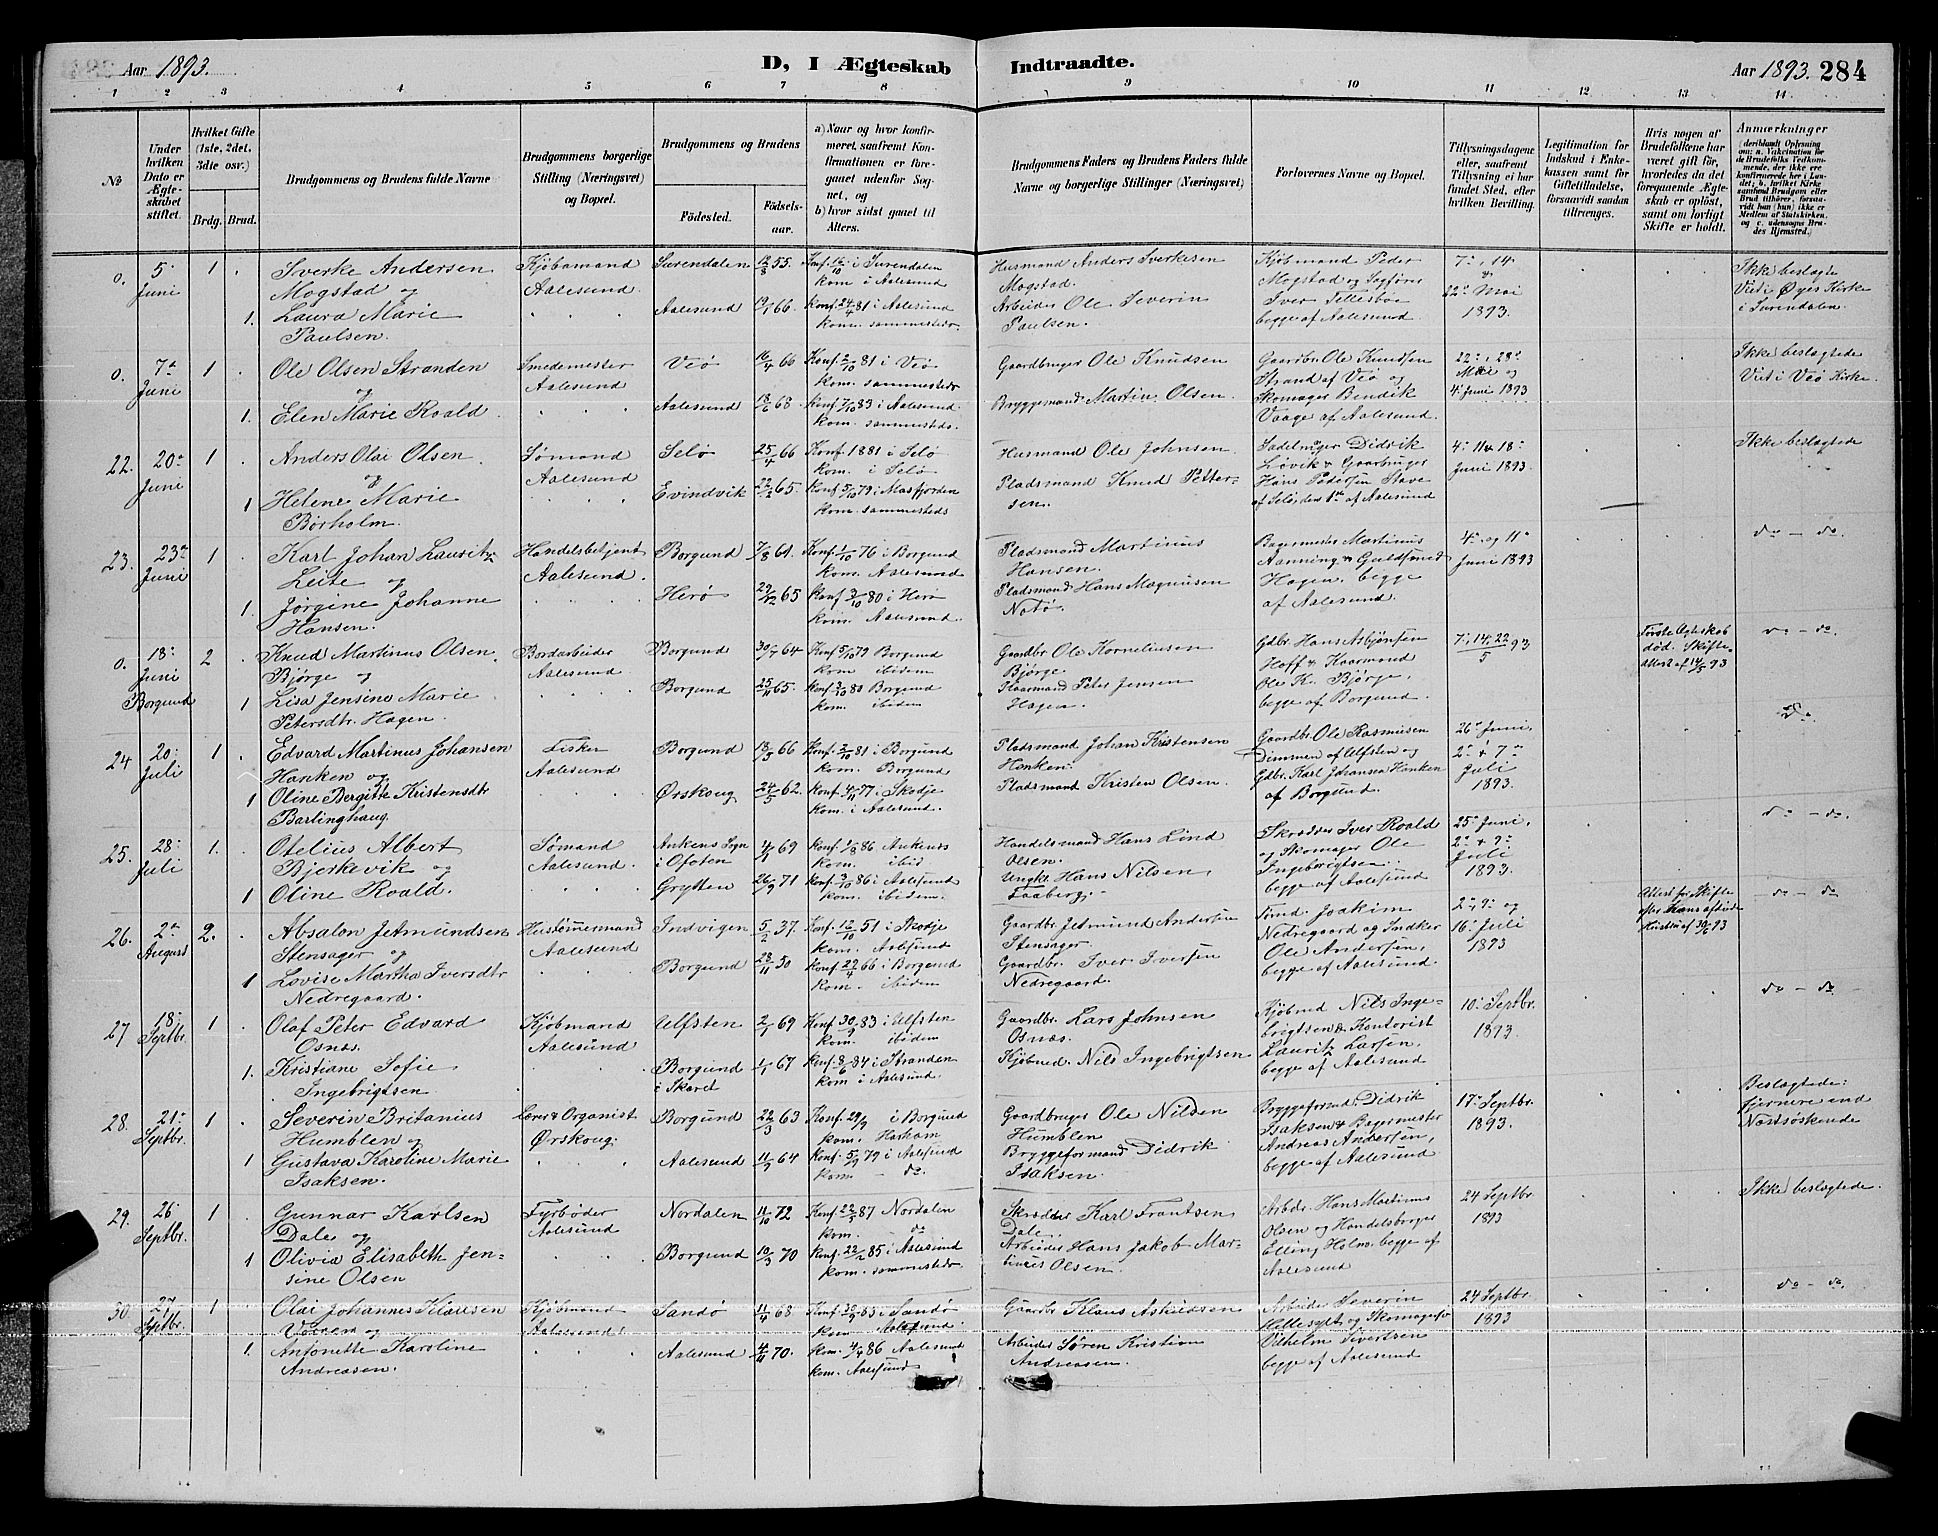 Aar 1893.
D, I Ægteskab Indtraadte.
Aar 1893. 284
1 2 3 4 5 6 7 8 9 10 11 12 13 14
No
Under hvilken Dato er Ægteskabet stiftet.
Hvilket Gifte (1ste, 2det, 3die osv.)
Brdg. Brud.
Brudgommens og Brudens fulde Navne
Brudgommens borgerlige Stilling (Næringsvei) og Bopæl.
Brudgommens og Brudens
Födested. Födselsaar.
a) Naar og hvor konfirmeret, saafremt Konfirmationen er foregaaet udenfor Sognet, og
b) hvor sidst gaaet til Alters.
Brudgommens Faders og Brudens Faders fulde Navne og borgerlige Stillinger (Næringsvei)
Forlovernes Navne og Bopæl.
Tillysningsdagene eller, saafremt Tillysning ei har fundet Sted, efter hvilken Bevilling.
Legitimation for Indskud i Enkekassen samt for Giftetilladelse, forsaavidt saadan tiltrænges.
Hvis nogen af Brudefolkene har været gift för, hvorledes da det foregaaende Ægteskab er oplöst, samt om lovligt Skifte er holdt.
Anmærkninger (deriblandt Oplysning om: a. Vakcination for de Brudefolks Vedkommende, der ikke ere konfirmerede her i Landet; b. hvilket Kirkesamfund Brudgom eller Brud tilhörer, forsaavidt han (hun) ikke er Medlem af Statskirken, og c. udensogns Brudes Hjemsted.
0. 5. Juni 1 Sverke Andersen Mogstad og
Kjøbmand Aalesund.
Surendalen 12/8 55. Konf. 16/10 i Surendalen kom i Aalesund
Husmand Anders Sverkesen Mogstad.
Kjøbmand Peder Mogstad og Sagfører Iver Tellesbøe begge af Aalesund.
7-, 14 & 22- Mai 1893.
Ikke beslægtede Viet i Øyes Kirke i Surendalen.
1. Laura Marie Paulsen.
Aalesund 19/1 66 Konf. 24/4 81 i Aalesund kom. sammesteds
Arbeider Ole Severin Paulsen.
0. 7de Juni 1 Ole Olsen Stranden og
Smedemester Aalesund
Veø 16/4 66 Konf. 2/10 81 i Veø kom. sammesteds
Gaardbruger Ole Knudsen
Gaardbr. Ole Knudsen Strand af Veø og Skomager Bendik Vaage af Aalesund.
22-, 28- Mai og 4- Juni 1893
Ikke beslægtede Viet i Veø Kirke.
1. Elen Marie Roald.
Aalesund 18/6 68. Konf. 7/10 83 i Aalesund. kom. sammesteds.
Bryggemand Martin Olsen.
22. 20- Juni 1 Anders Olai Olsen og
Sømand Aalesund
Selø 25/4 66 Konf 1881 i Selø kom. i Selø
Husmand Ole Johnsen
Sadelmager Didrik Løvik & Gaarbruger Hans Pedersen Stave af Selø, den 1ste af Aalesund
4- 11 & 18- Juni 1893.
Ikke beslægtede
1 Helene Marie Børholm.
Evindvik 22/2 65. Konf 5/10 79 i Masfjorden kom. sammesteds
Pladsmand Knud Pettersen.
23. 23de Juni 1 Karl Johan Lauritz Leite og
Handelsbetjent Aalesund.
Borgund 7/8 61. Konf. 1/10 76 i Borgund kom. Aalesund
Pladsmand Martinus Hansen.
Bagermester Martinus Aanning & Guldsmed Hagen, begge af Aalesund.
4- og 11- Juni 1893
do - do.
1. Jørgine Johanne Hansen.
Herø 29/12 65 Konf. 3/10 80 i Herø kom. Aalesund.
Pladsmand Hans Magnusen Notø.
0. 18- Juni Borgund 2 Knud Martinus Olsen Bjørge og
Bordarbeider Aalesund
Borgund 30/7 64 Konf. 5/10 79 Borgund kom ibidem
Gaardbr. Ole Korneliusen Bjørge.
Gdbr. Hans Asbjørnsen Hoff & Kaarmand Ole K. Bjørge, begge af Borgund.
7-, 14, 22/5 93
Første Egteskab død. Skifte Attest af 14/5 93
do - do.
1 Lisa Jensine Marie Petersdtr. Hagen.
Borgund 25/11 65. Konf. 3/10 80 Borgund kom. ibidem
Peter Jensen Hagen.
24 20- Juli 1 Edvard Martinus Johansen Hanken og
Fisker Aalesund
Borgund 13/3 66 Konf. 2/10 81 i Borgund kom. Borgund
Pladsmand Johan Kristensen Henken.
Gaardbr. Ole Rasmusen Dimmen af Ulfsten og Gdbr. Karl Johansen Hanken af Borgund.
26- Juni, 2- & 7- Juli 1893.
Do.
1 Oline Bergitte Kristensdtr Barlinghaug.
Ørskoug 24/5 62. Konf. 4/11 77 i Skodje kom. i Aalesund.
Pladsmand Kristen Olsen.
25. 28- Juli 1. Otelius Albert Bjerkevik og
Sømand Aalesund.
Ankens Sogn i Ofoten 4/1 69 Konf. 1/8 86 Ankens kom. ibid
Handelsmand Hans Lind Olsen.
Skrædder Iver Roald og Skomager Ole Ingebrigtsen begge af Aalesund
25- Juni, 2- & 9- Juli 1893.
do - do.
1 Oline Roald.
Grytten 26/9 71 Konf. 3/10 86 i Aalesund kom. ibidem.
Ungkr. Hans Nilsen Faaberg.
26. 2- August 2. Absalon Jetmundsen Stensager og
Hustømmermand Aalesund
Indvigen 5/2 37. Konf 12/10 51 i Skodje kom. Aalesund
Gaardbr. Jetmund Andersen Stensager.
Tømd. Joakim Nedregaard og Snedker Ole Andersen, begge af Aalesund.
2-, 9- og 16- Juli 1893
Attest for Skifte efter Hans afdøde Hustru af 30/6 93
do - do
1 Lovise Martha Iversdtr Nedregaard.
Borgund 28/11 50 Konf 29/4 66 i Borgund kom. ibidem
Gaardbr. Iver Iversen Nedregaard.
27 18- Septbr. 1 Olaf Peter Edvard Osnæs.
Kjøbmand Aalesund
Ulfsten 2/1 69 Konf. 30/9 83 i Ulfsten kom. ibidem
Gaardbr. Lars Johnsen Osnæs.
Kjøbmd Nils Ingebrigtsen & Kontorist Lauritz Larsen, begge af Aalesund
10- Septbr. 1893.
do - do -
1. Kristiane Sofie Ingebrigtsen.
Borgund i Skaret 1/1 67 Konf. 8/6 84 i Stranden kom i Aalesund.
Kjøbmd. Nils Ingebrigtsen
28. 21- Septbr. 1 Severin Britanius Humblen og
Lærer & Organist Ørskoug.
Borgund 22/3 63 Konf. 29/9 i Borgund kom. Harham
Gaardbruger Ole Nilsen Humblen
Bryggeformd. Didrik Isaksen & Bagermester Andreas Andersen, begge af Aalesund
17- Septbr. 1893.
Beslægtede: fjernere end Næstsøskende
1 Gustava Karoline Marie Isaksen.
Aalesund 11/9 64 Konf. 5/9 79 i Aalesund kom. - do.
Bryggeformand Didrik Isaksen.
29. 26- Septbr. 1 Gunnar Karlsen Dale og
Fyrbøder Aalesund
Nordalen 11/10 72 Konf. 22/5 87 Nordalen kom. do
Skrædder Karl Frantsen Dale.
Arbdr. Hans Martinus Olsen og Handelsborger Elling Holm, begge af Aalesund
24 Septbr 1893
Ikke beslegtede.
1 Olivia Elisabeth Jensine Olsen
Borgund 10/3 70 Konf. 22/2 85 i Aalesund kom. sammesteds
Arbeider Hans Jakob Martinus Olsen.
30. 27 Septbr. 1 Olai Johannes Klausen Voksen og
Kjøbmand Aalesund.
Sandø 11/4 68 Konf 30/9 83 i Sandø kom Aalesund.
Gaardbr Klaus Askildsen
Arbeider Severin Hellesylt og Skomagersv Vilhelm Sivertsen begge af Aalesund
24 Septbr. 1893
do - do.
1. Antonette Karoline Andreasen.
Aalesund 4/11 70. kom. 4/4 86 Aalesund kom. Aalesund
Arbeider Søren Kristian Andreasen.